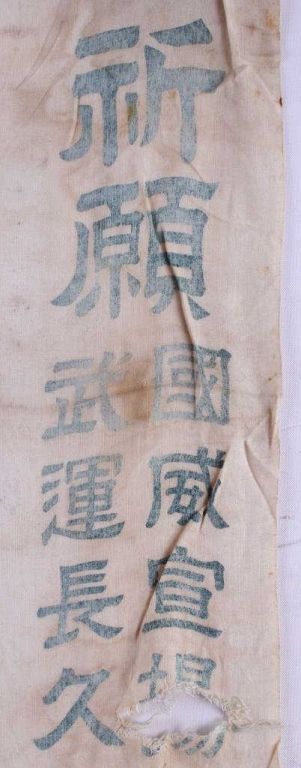 祈願
國威宣揚
武運長久